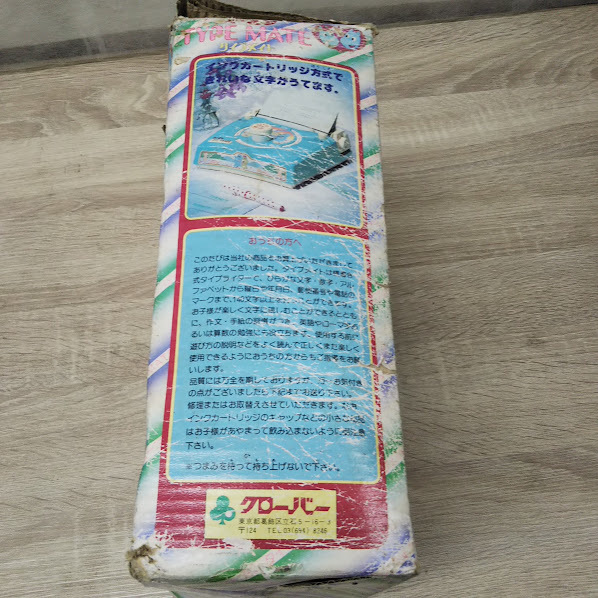 TYPE MATE 60
タイプメイト
インクカートリッジ方式で
きれいな文字がうてます。
おうちの方へ
このたびは当社の商品をお買上げいただきまして
ありがとうございました。タイプメイトは
式タイプライターで、ひらがな文字・数字・アル
ファベットから曜日や年月日、郵便番号や電話の
マークまで、140文字以上を
お子様が楽しく文字に親しむことができるととも
に、作文・手紙の練習がつき、英語やローマ字
るいは算数の勉強にも役立ちます。使用する前に
遊び方の説明などをよく読んで正しくまた楽しく
使用できるようにおうちの方からもご指導をお願
いします。
品質には万全を期しておりますが、お気付き
の点がございましたら下記までお送り下さい。
修理またはお取替えさせていただきます。なお
インクカートリッジのキャップなどの小さな部品
はお子様があやまって飲み込まないように
下さい。
※つまみを持って持ち上げないで下さい。
クローバー
東京都葛飾区立石5-16-
〒124 TEL 03(694) 8246